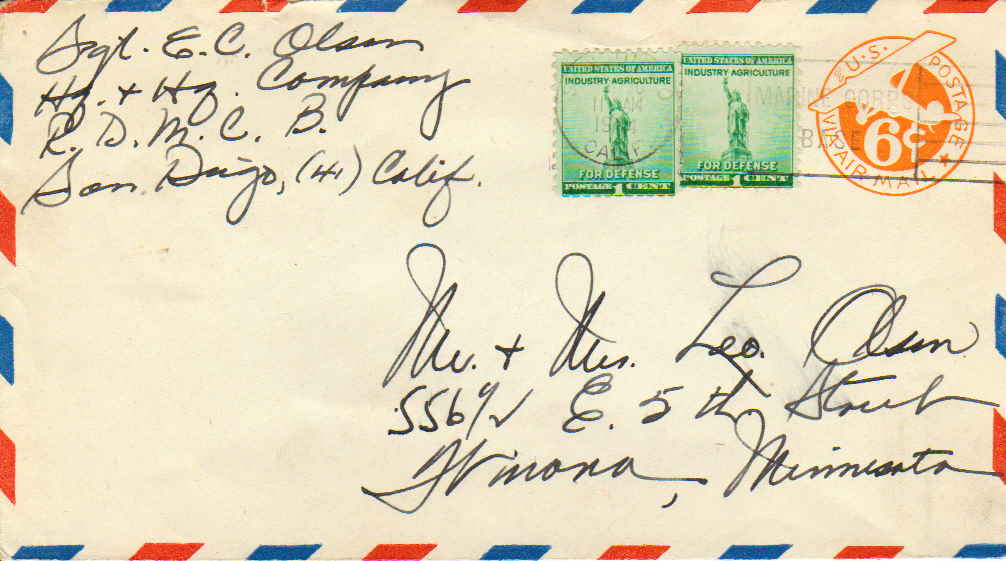 Sgt. E. C. Olsen
Hq. + Hq. Company
R. D. M. C. B.
San Diego, (41) Calif.
UNITED STATES OF AMERICA
INDUSTRY AGRICULTURE
FOR DEFENSE
POSTAGE 1 CENT
UNITED STATES OF AMERICA
INDUSTRY AGRICULTURE
FOR DEFENSE
POSTAGE 1 CENT
11 AM
CALIF
MARINE CORPS
BASE
U.S. POSTAGE
6¢
VIA AIR MAIL
Mr. + Mrs. Leo. Olsen
556 1/2 E. 5 th Street
Winona, Minnesota